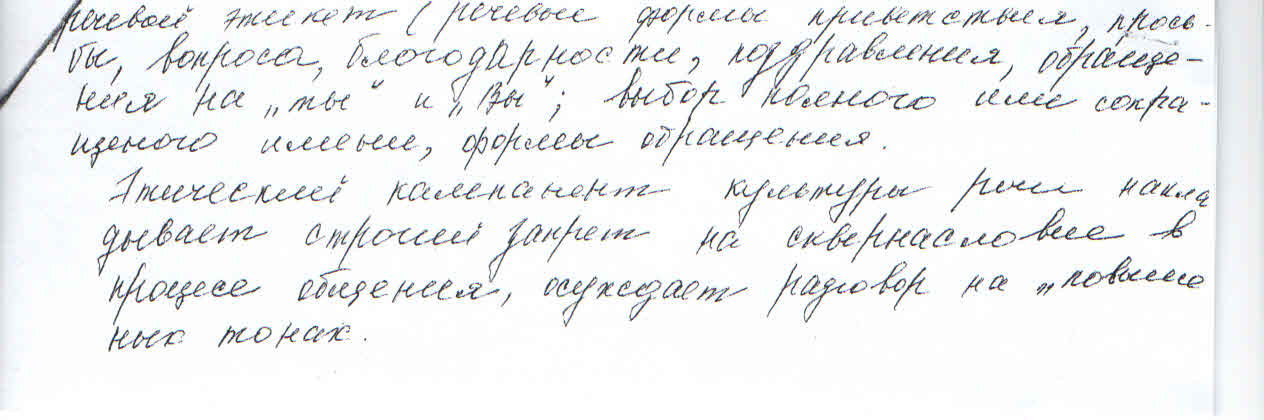 речевой этикет (речевые формы приветствия, прось-
бы, вопроса, благодарности, поздравления, обраще-
ния на „ты“ и „Вы“; выбор полного или сокра-
щеного имени, формы обращения.
Этический кампанент культуры речи накла
дывает строгий запрет на сквернасловие в
процесе общения, осуждает разговор на „повыше
ных тонах.